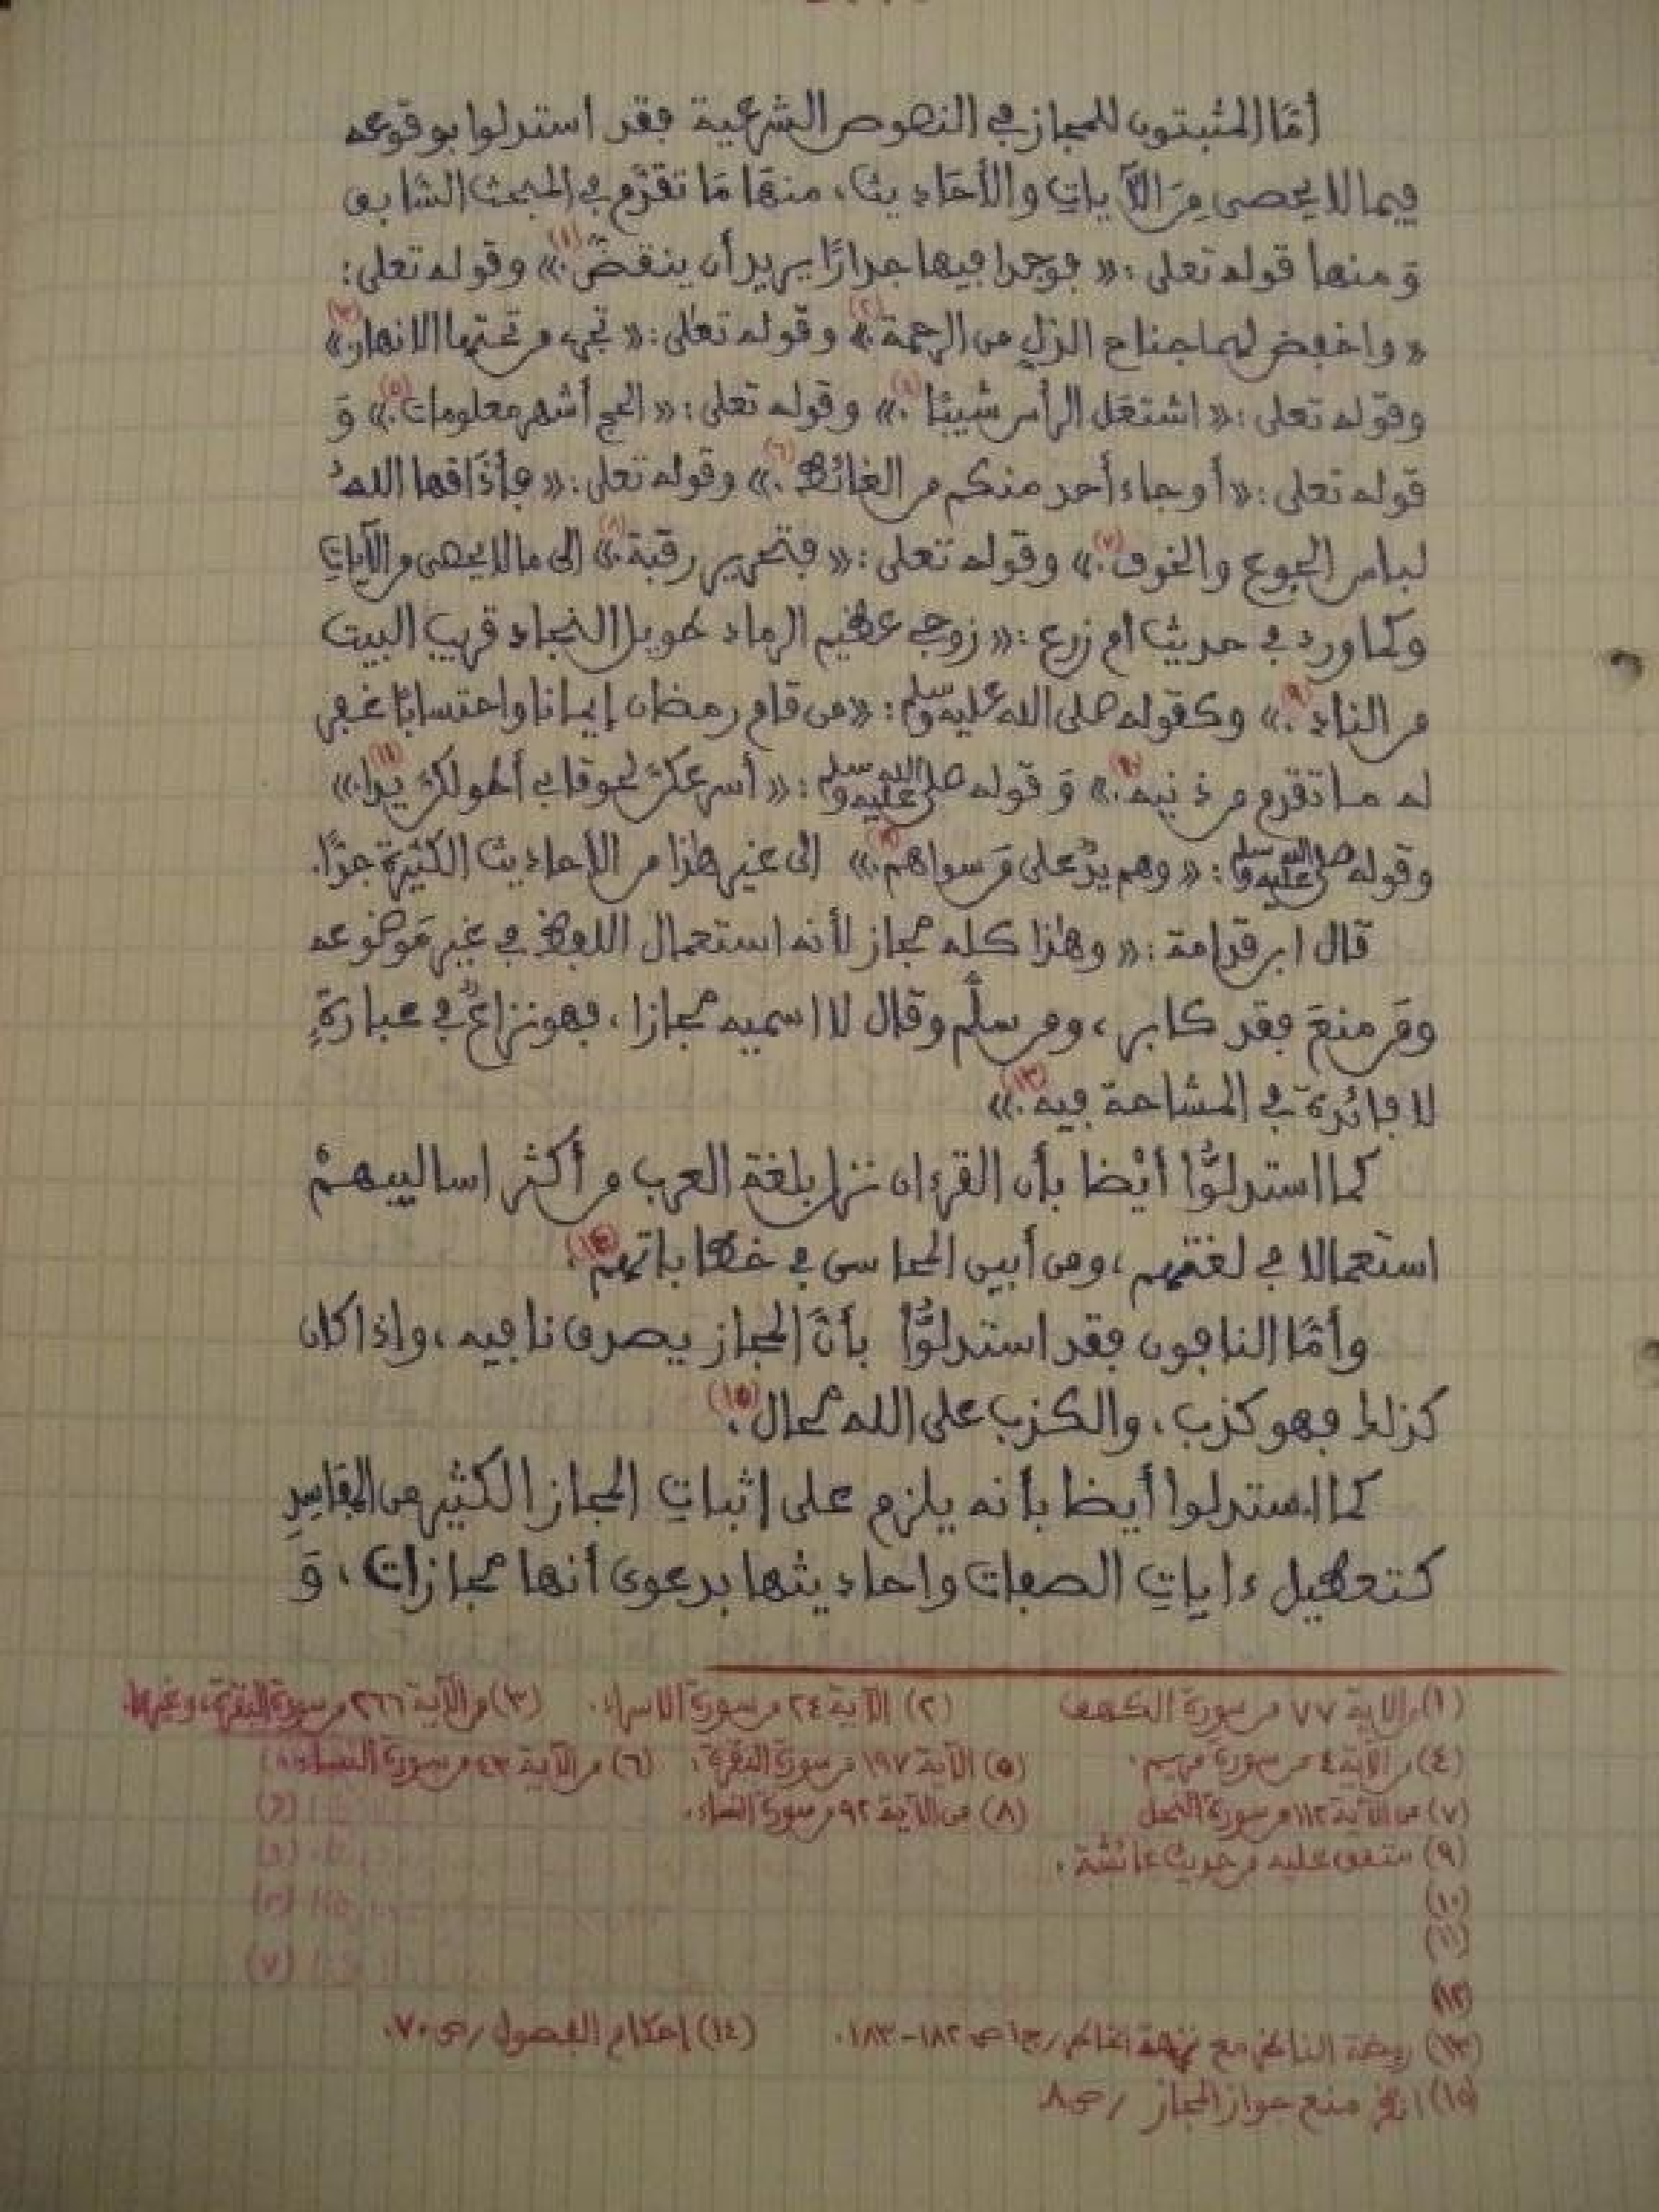 أمَّا المثبتون للمجاز في النصوص الشرعية فقد استدلوا بوقوعه
فيما لا يحصى مِنَ الآياتِ والأحَاديث، منهَا مَا تقدَّم في المبحث السَّابق
وَمنها قوله تعلى: «فوجدا فيها جدارًا يريد أن ينقضّ.» (١) وقوله تعلى:
«واخفض لهما جناح الذلِ من الرحمة.» (٢) وقوله تعلى: «تجرے من تحتها الانهار.» (٣)
وقوله تعلى: «اشتعَل الرأس شيبًا.» (٤) وقوله تعلى: «الحج أشهر معلومات.» (٥) وَ
قوله تعلى: «أو جاء أحد منكم من الغائط.» (٦) وقوله تعلى: «فأذَاقها اللهُ
لباس الجوع والخوف.» (٧) وقوله تعلى: «فتحرير رقبة.» (٨) الى ما لا يحصى من الآياتِ
وكما ورد في حديث أم زرع: «زوجي عظيم الرماد طويل النجاد قريب البيت
من الناد.» (٩) وكقوله صلى الله عليه وسلم: «من قام رمضان إيمانا واحتسابًا غفر
له ما تقدم من ذنبه.» (١٠) وَقوله صلى الله عليه وسلم: «أسرعكنّ لحوقا بي أطولكنّ يدا.» (١١)
وقوله صلى الله عليه وسلم: «وهم يدٌ على مَن سواهم.» (١٢) الى غير هٰذا من الأحاديث الكثيرة جدًّا.
قال ابن قدامة: «وهٰذا كله مجاز لأنه استعمال اللفظ في غير مَوضوعه
ومَن منعَ فقد كابر، ومن سلَّم وقال لا اسميه مجازا، فهو نزاعٌ في عبارةٍ
لا فائدة في المشاحة فيه.» (١٣)
كما استدلوُّا أيْضا بأن القرءان نزل بلغة العرب من أكثر اساليبهمْ
استعمالا في لغتهم، ومن أبين المحاسن في خطاباتهم (١٤).
وأمَّا النافون فقد استدلوُّا بأنَّ المجاز يصدق نافيه، واذا كان
كذلك فهو كذب، والكذب على الله محال (١٥).
كما استدلوا أيضا بأنه يلزم على إثباتِ المجاز الكثير من المفاسِدِ
كتعطيل ءاياتِ الصفات واحاديثها بدعوى أنها مجازات، وَ
(١) من الاية ٧٧ من سورة الكهف (٢) الآية ٢٤ من سورة الاسراء. (٣) من الآية ٢٦٦ من سورة البقرة، وغيرها.
(٤) من الآية ٤ من سورة مريم. (٥) الآية ١٩٧ من سورة البقرة. (٦) من الآية ٤٣ من سورة النساء
(٧) من الآية ١١٢ من سورة النحل (٨) من الآية ٩٢ من سورة النساء.
(٩) متفق عليه من حديث عائشة.
(١٠)
(١١)
(١٢)
(١٣) روضة الناظر مع نزهة الخاطر / ج١ ص ١٨٢-١٨٣. (١٤) إحكام الفصول / ص ٧٠.
(١٥) انظر منع جواز المجاز / ص ٨